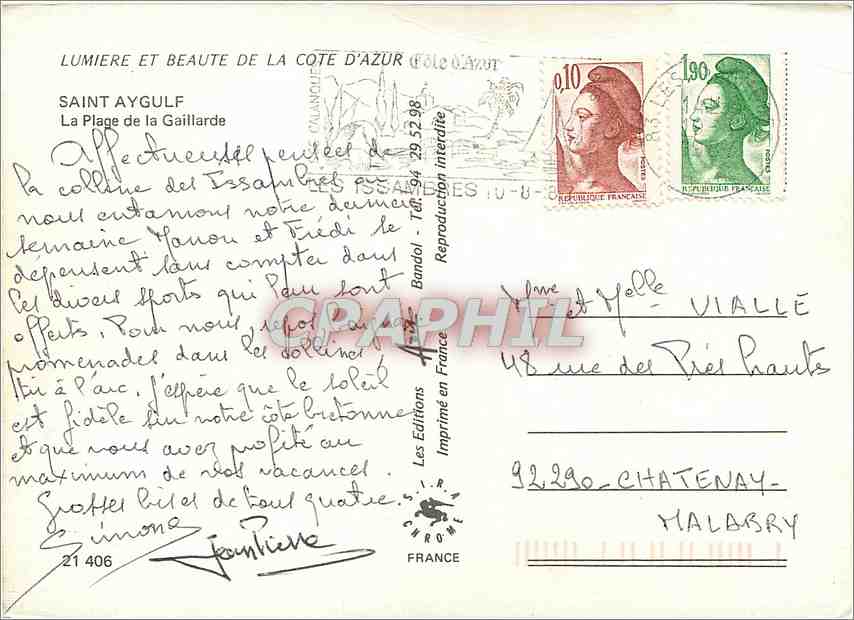 LUMIERE ET BEAUTE DE LA COTE D'AZUR
SAINT AYGULF
La Plage de la Gaillarde
Affectueuses pensées de
la colline des Issambres où
nous entamons notre dernière
semaine Manou et Frédi se
dépensent sans compter dans
les divers sports qui leur sont
offerts. Pour nous, repos baignade
promenades dans les collines,
tir à l'arc. J'espère que le soleil
est fidèle sur notre côte bretonne
et que vous avez profité au
maximum de vos vacances.
Grosses bises de tous quatre.
Simone
Jean Pierre
21 406
Côte d'Azur
CALANQUE
LES ISSAMBRES 10-8-8
83 LES
0,10
POSTES
REPUBLIQUE FRANÇAISE
1,90
POSTES
REPUBLIQUE FRANÇAISE
Les Editions Aris Bandol - Tél. 94 29 52 98
Imprimé en France Reproduction interdite
S.I.R.A.
CHROME
FRANCE
Mme et Melle VIALLE
48 rue des Prés hauts
92290 - CHATENAY-
MALABRY
CPARPHIL